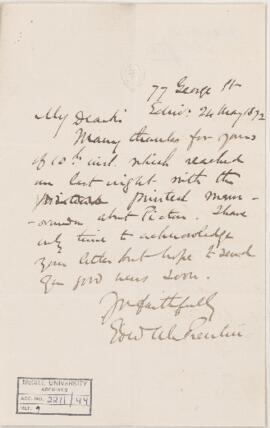 77 George St
Edinr 24 May 1892
My Dear Sir
Many thanks for yours
of 10th inst which reached
me last night with the
printed mem-
orandum about Picton. I have
only time to acknowledge
your letter but hope to send
you good news soon.
Yrs faithfully
Edw
McGILL UNIVERSITY
ARCHIVES
ACC. NO. 2211/44
REF. 9